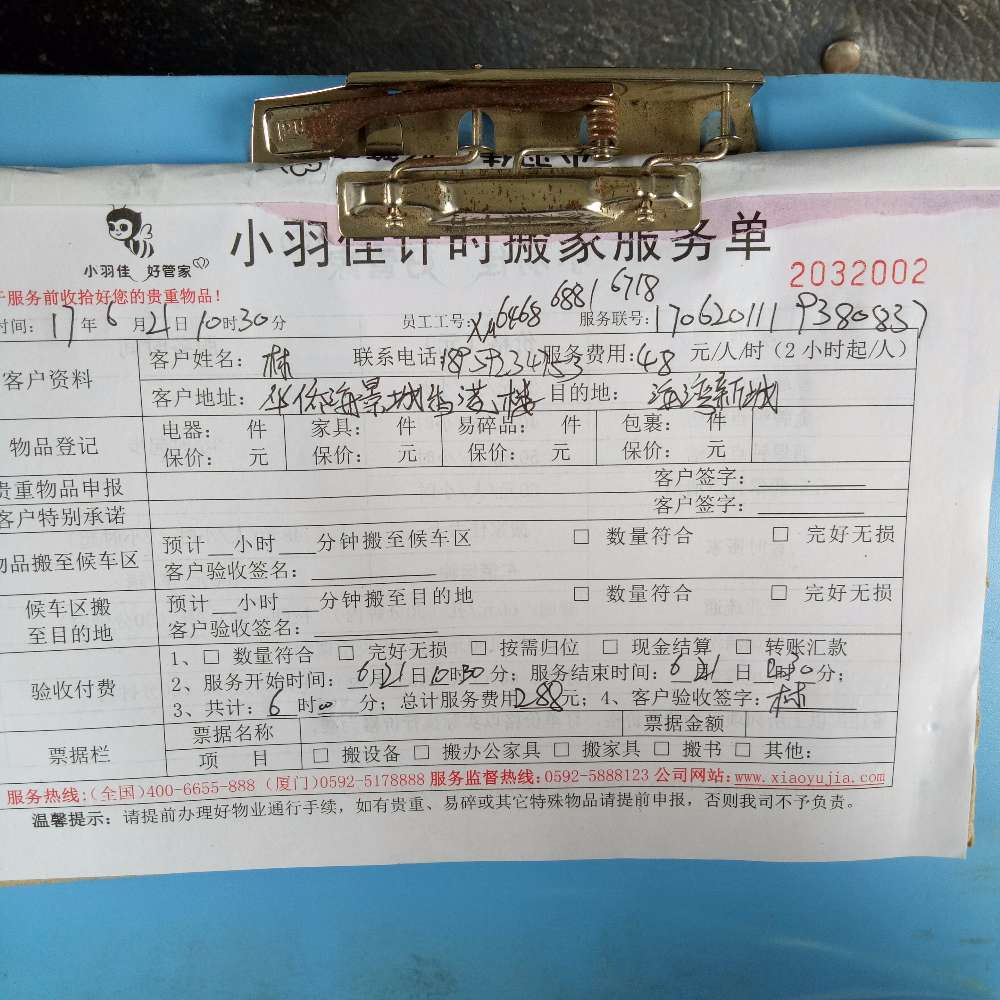 小羽佳 好管家
小羽佳计时搬家服务单
2032002
服务前收拾好您的贵重物品!
时间: 17年6月21日10时30分 员工工号: 6468 6881 6718 服务联号: 170620111 9380837
客户资料
客户姓名: 林 联系电话: 18959234153 服务费用: 48 元/人/时(2小时起/人)
客户地址: 华侨海景城 楼 目的地: 海湾新城
物品登记
电器: 件 家具: 件 易碎品: 件 包裹: 件
保价: 元 保价: 元 保价: 元 保价: 元
贵重物品申报 客户签字:
客户特别承诺 客户签字:
物品搬至候车区
预计__小时__分钟搬至候车区 □ 数量符合 □ 完好无损
客户验收签名:
候车区搬至目的地
预计__小时__分钟搬至目的地 □ 数量符合 □ 完好无损
客户验收签名:
验收付费
1、□ 数量符合 □ 完好无损 □ 按需归位 □ 现金结算 □ 转账汇款
2、服务开始时间: 6月21日10时30分; 服务结束时间: 6月21日 时30分;
3、共计: 6时00分; 总计服务费用288元; 4、客户验收签字: 林
票据栏
票据名称 票据金额
项 目 □ 搬设备 □ 搬办公家具 □ 搬家具 □ 搬书 □ 其他:
服务热线:(全国)400-6655-888 (厦门)0592-5178888 服务监督热线:0592-5888123 公司网站:www.xiaoyujia.com
温馨提示: 请提前办理好物业通行手续，如有贵重、易碎或其它特殊物品请提前申报，否则我司不予负责。